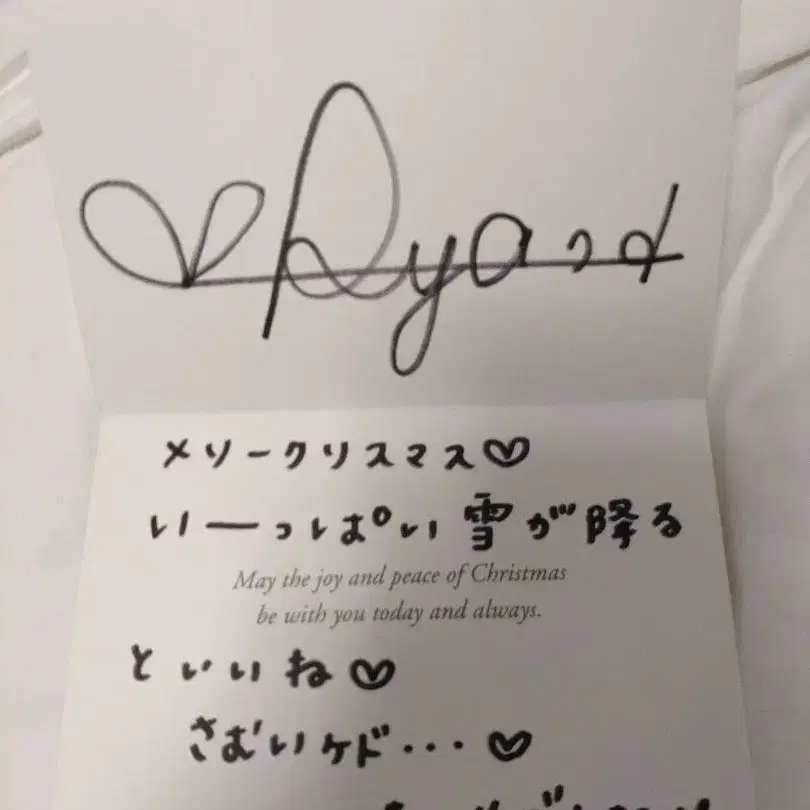 ♡Ryo
メリークリスマス♡
いーっぱい雪が降る
May the joy and peace of Christmas
be with you today and always.
といいね♡
さむいケド...♡